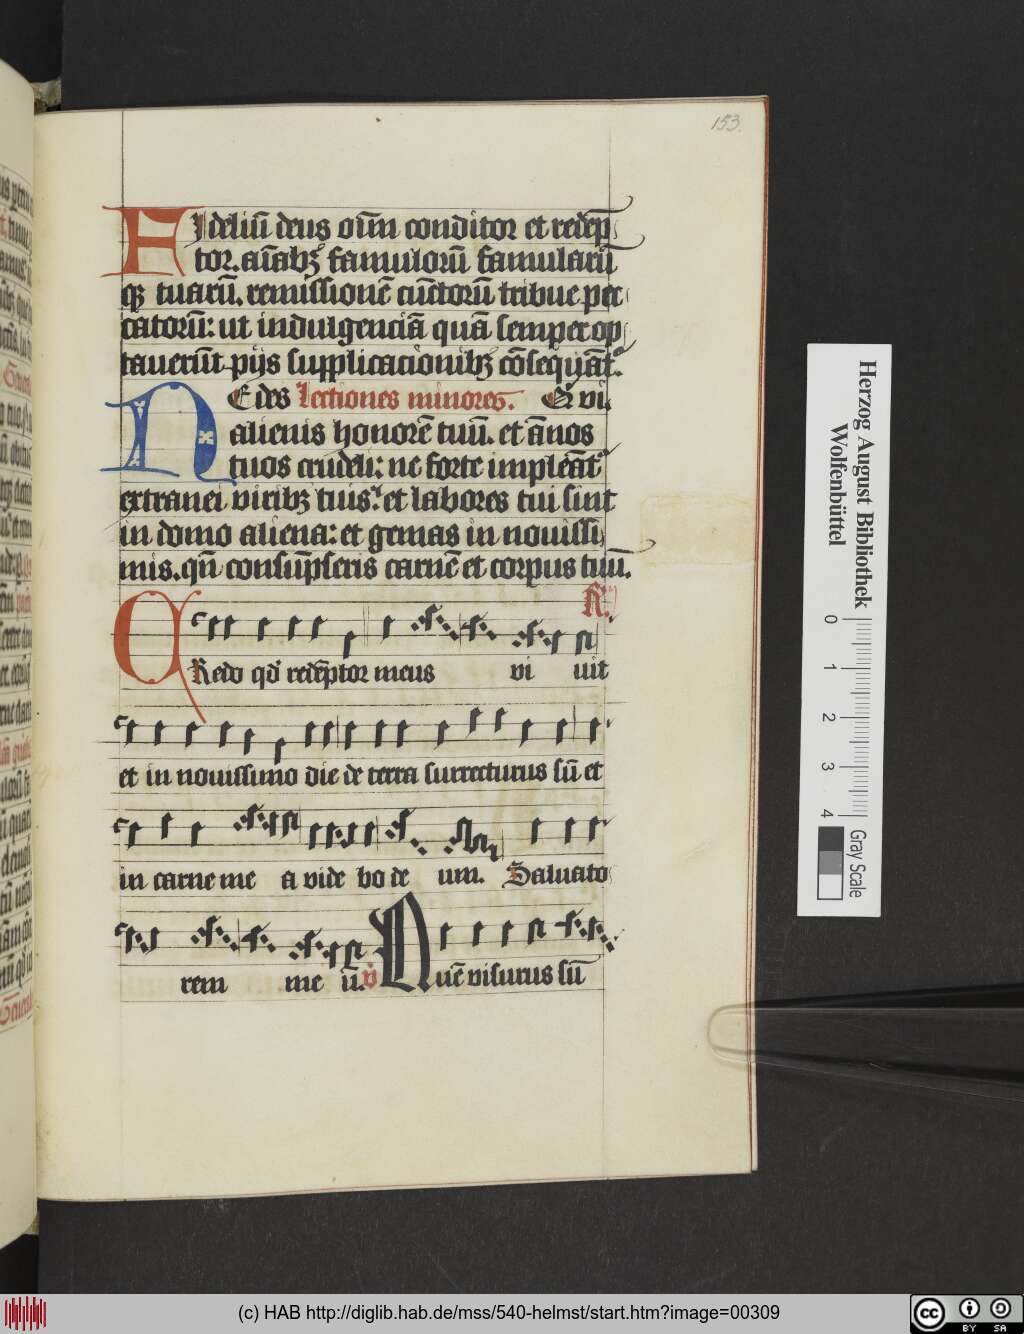 153.
FIdeliū deus oīm conditor et redēp
tor. aīabꝫ famulorū famularū
qꝫ tuarū. remissionē cūctorū tribue pec
catorū: ut indulgenciā quā semper op
tauerūt pijs supplicacionibꝫ cōsequāt᷑.
NE des Lectiones minores. Et vi.
alienis honorē tuū. et ānos
tuos crudeli: ne forte impleāt᷑
extranei viribꝫ tuis: et labores tui sint
in domo aliena: et gemas in nouissi
mis. qn̄ consūpseris carnē et corpus tuū.
R.
CRedo qd' redēptor meus vi uit
et in nouissimo die de terra surrecturus sū et
in carne me a videbo de um. Saluato
rem me ū. v Quē visurus sū
Herzog August Bibliothek
Wolfenbüttel
0 1 2 3 4
Gray Scale
(c) HAB http://diglib.hab.de/mss/540-helmst/start.htm?image=00309
cc BY SA